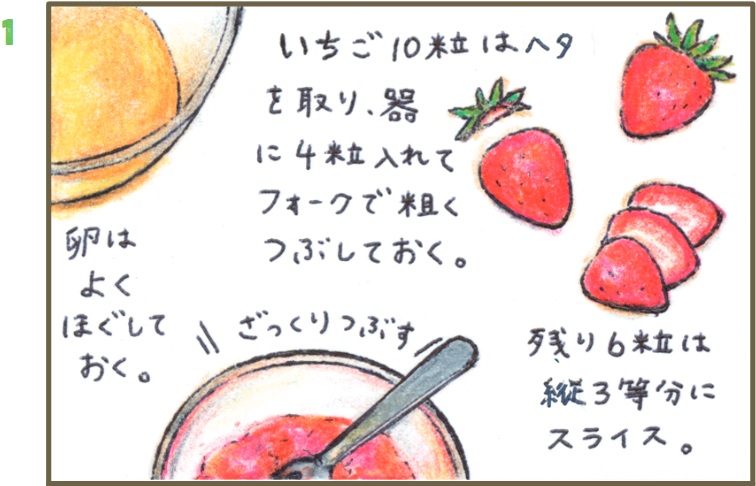 1
いちご10粒はヘタ
を取り、器
に4粒入れて
フォークで粗く
つぶしておく。
卵は
よく
ほぐして
おく。
ざっくりつぶす
残り6粒は
縦3等分に
スライス。